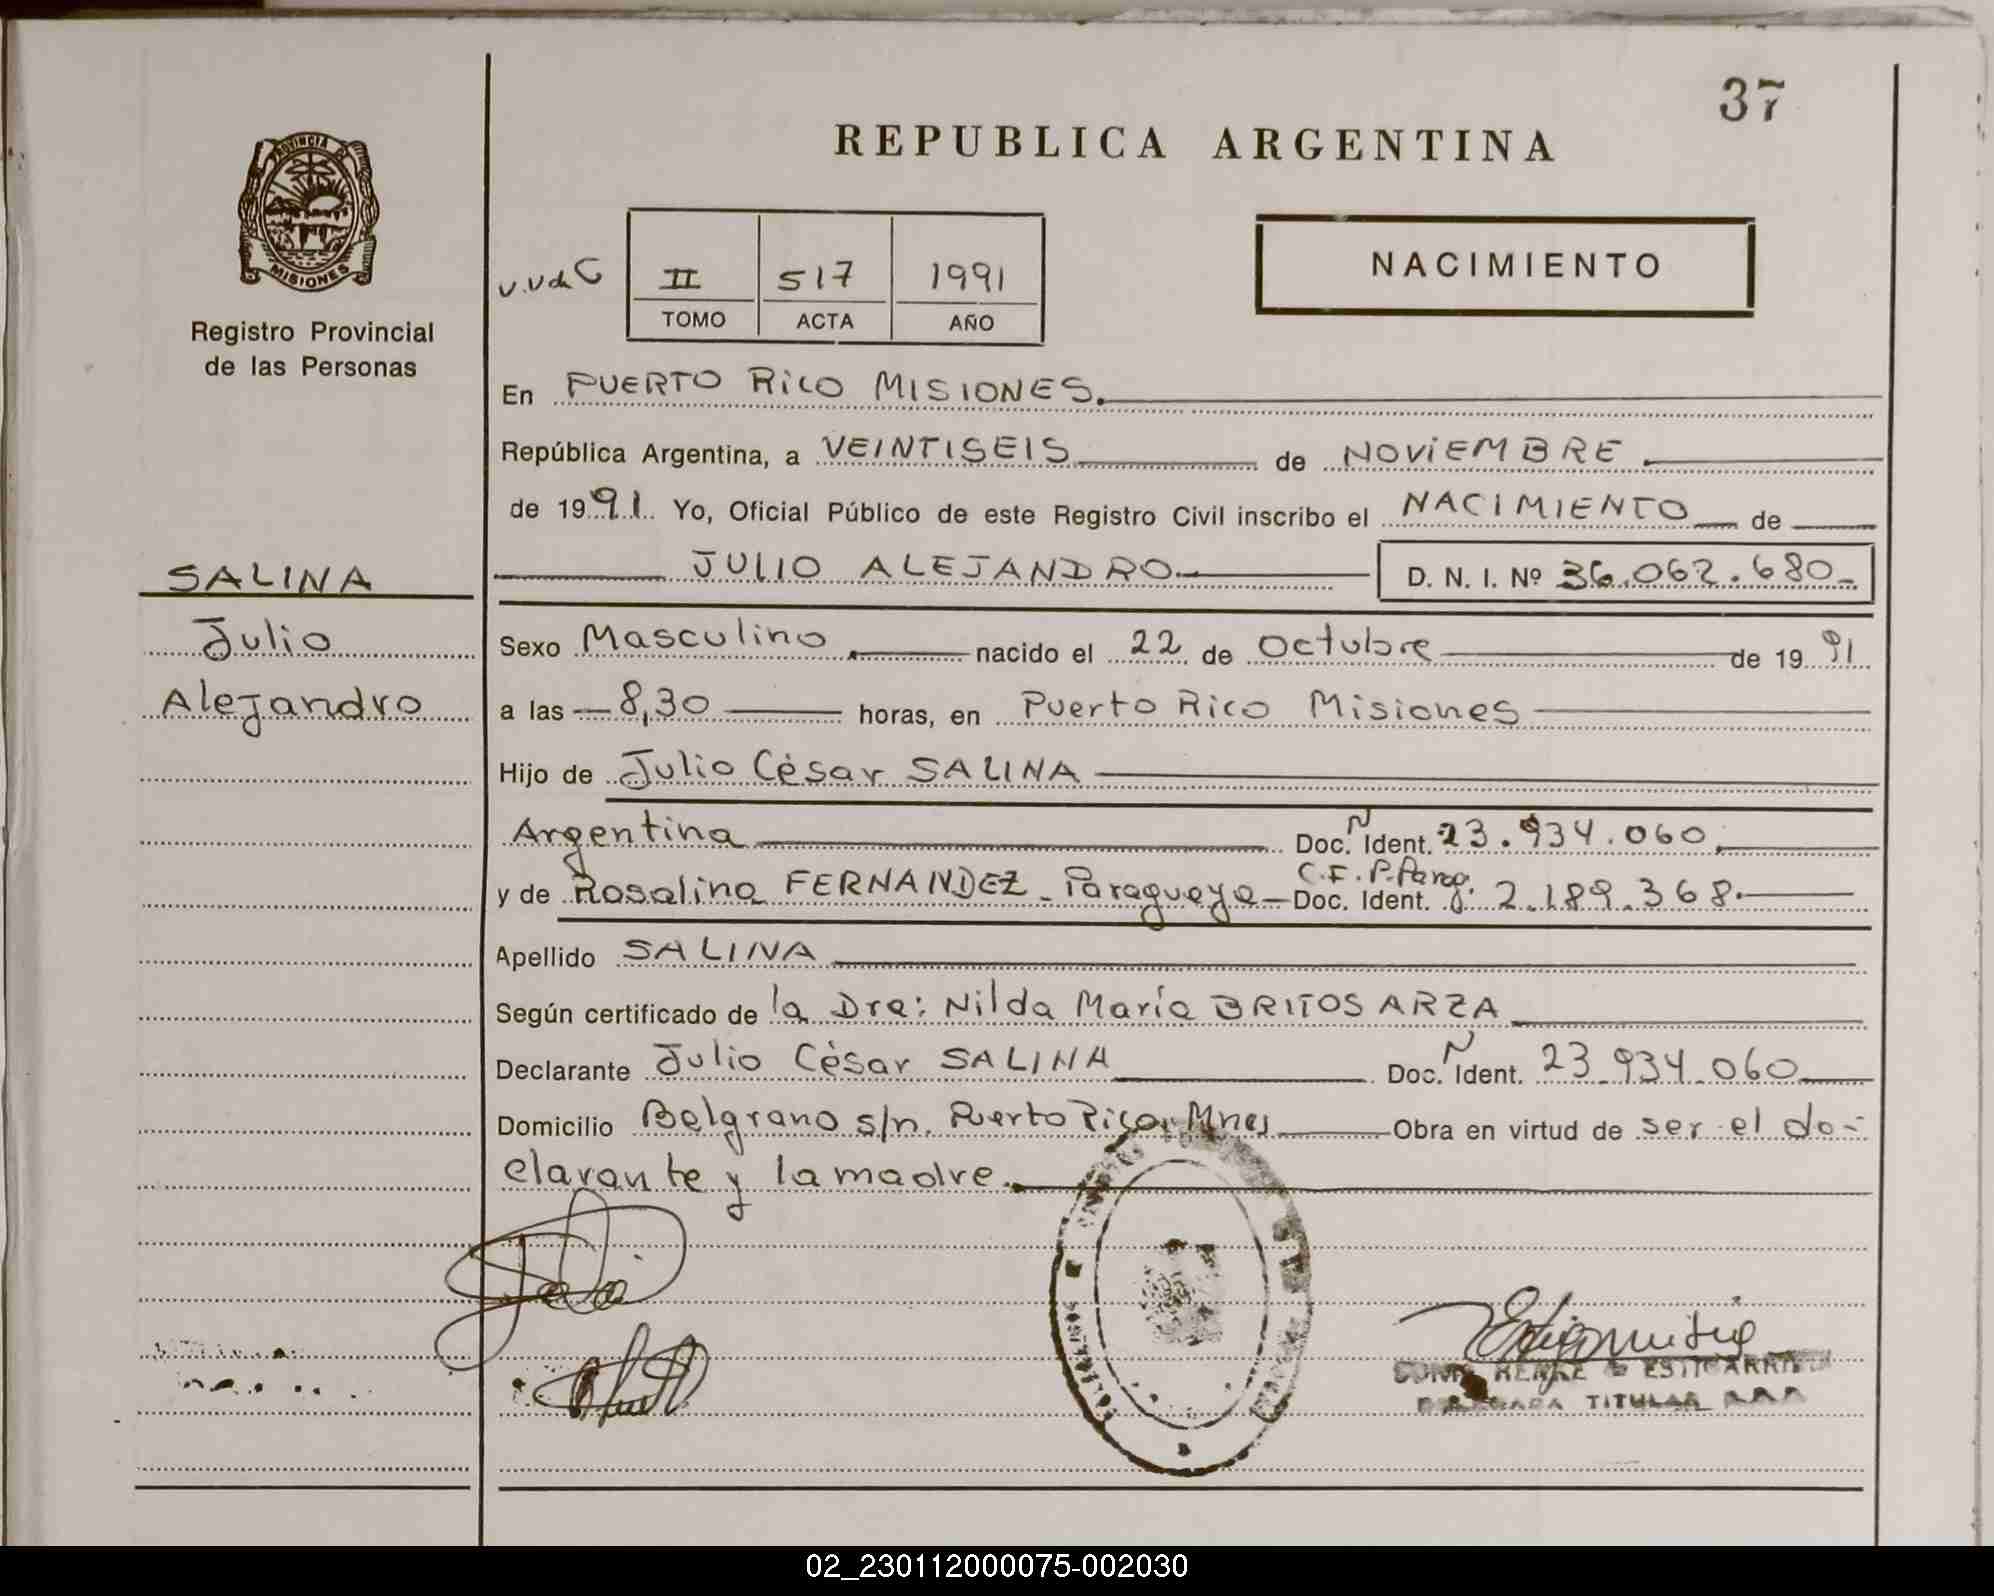 37
REPUBLICA ARGENTINA
PROVINCIA DE
MISIONES
Registro Provincial
de las Personas
NACIMIENTO
II 517 1991
TOMO ACTA AÑO
En PUERTO RICO MISIONES.
República Argentina, a VEINTISEIS de NOVIEMBRE
de 1991. Yo, Oficial Público de este Registro Civil inscribo el NACIMIENTO de
JULIO ALEJANDRO. D. N. I. Nº 36.062.680-
SALINA
Julio
Alejandro
Sexo Masculino, nacido el 22 de Octubre de 1991
a las 8,30 horas, en Puerto Rico Misiones
Hijo de Julio César SALINA
Argentina Doc. N Ident. 23.934.060,
y de Rosalina FERNANDEZ - Paraguaya - C.F.P.Parag. Doc. Ident. 2.189.368.
Apellido SALINA
Según certificado de la Dra: Nilda María BRITOS ARZA
Declarante Julio César SALINA Doc. N Ident. 23.934.060
Domicilio Belgrano s/n. Puerto Rico, Mnes Obra en virtud de ser el de-
clarante y la madre.
TITULAR
02_230112000075-002030